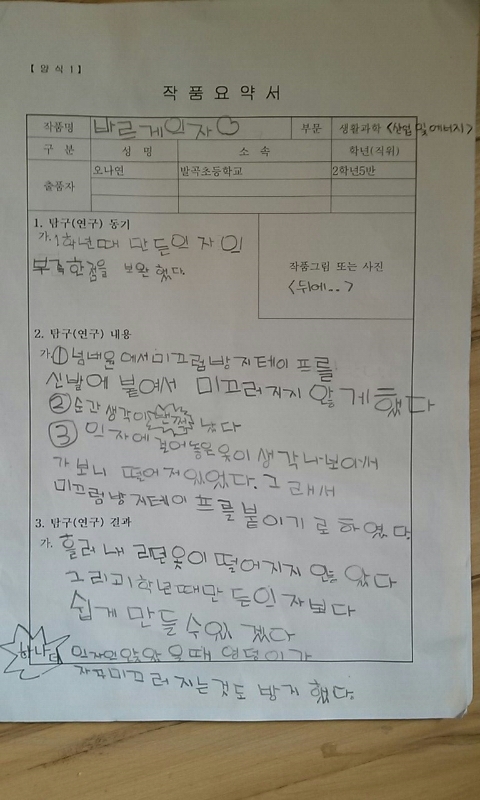 【 양 식 1 】
작 품 요 약 서
작품명 바르게의자♡ 부문 생활과학 <산업 및 에너지>
구 분 성 명 소 속 학년(직위)
출품자 오나연 발곡초등학교 2학년5반
1. 탐구(연구) 동기
가. 1학년때 만든의자의
부족한점을 보완했다.
작품그림 또는 사진
<뒤에..>
2. 탐구(연구) 내용
가. ① 넘네온에서미끄럼방지테이프를
신발에 붙여서 미끄러지지 않게했다
② 순간 생각이 번쩍 났다
③ 의자에 걸어놓은옷이 생각나보이서
가보니 떨어져있었다. 그래서
미끄럼방지테이프를붙이기로하였다.
3. 탐구(연구) 결과
가. 흘러내리던옷이떨어지지 않았다
그리고1학년때만든의자보다
쉽게 만들 수있겠다
하나더 의자인앉았을때 엉덩이가
자꾸미끄러지는것도 방지했다.